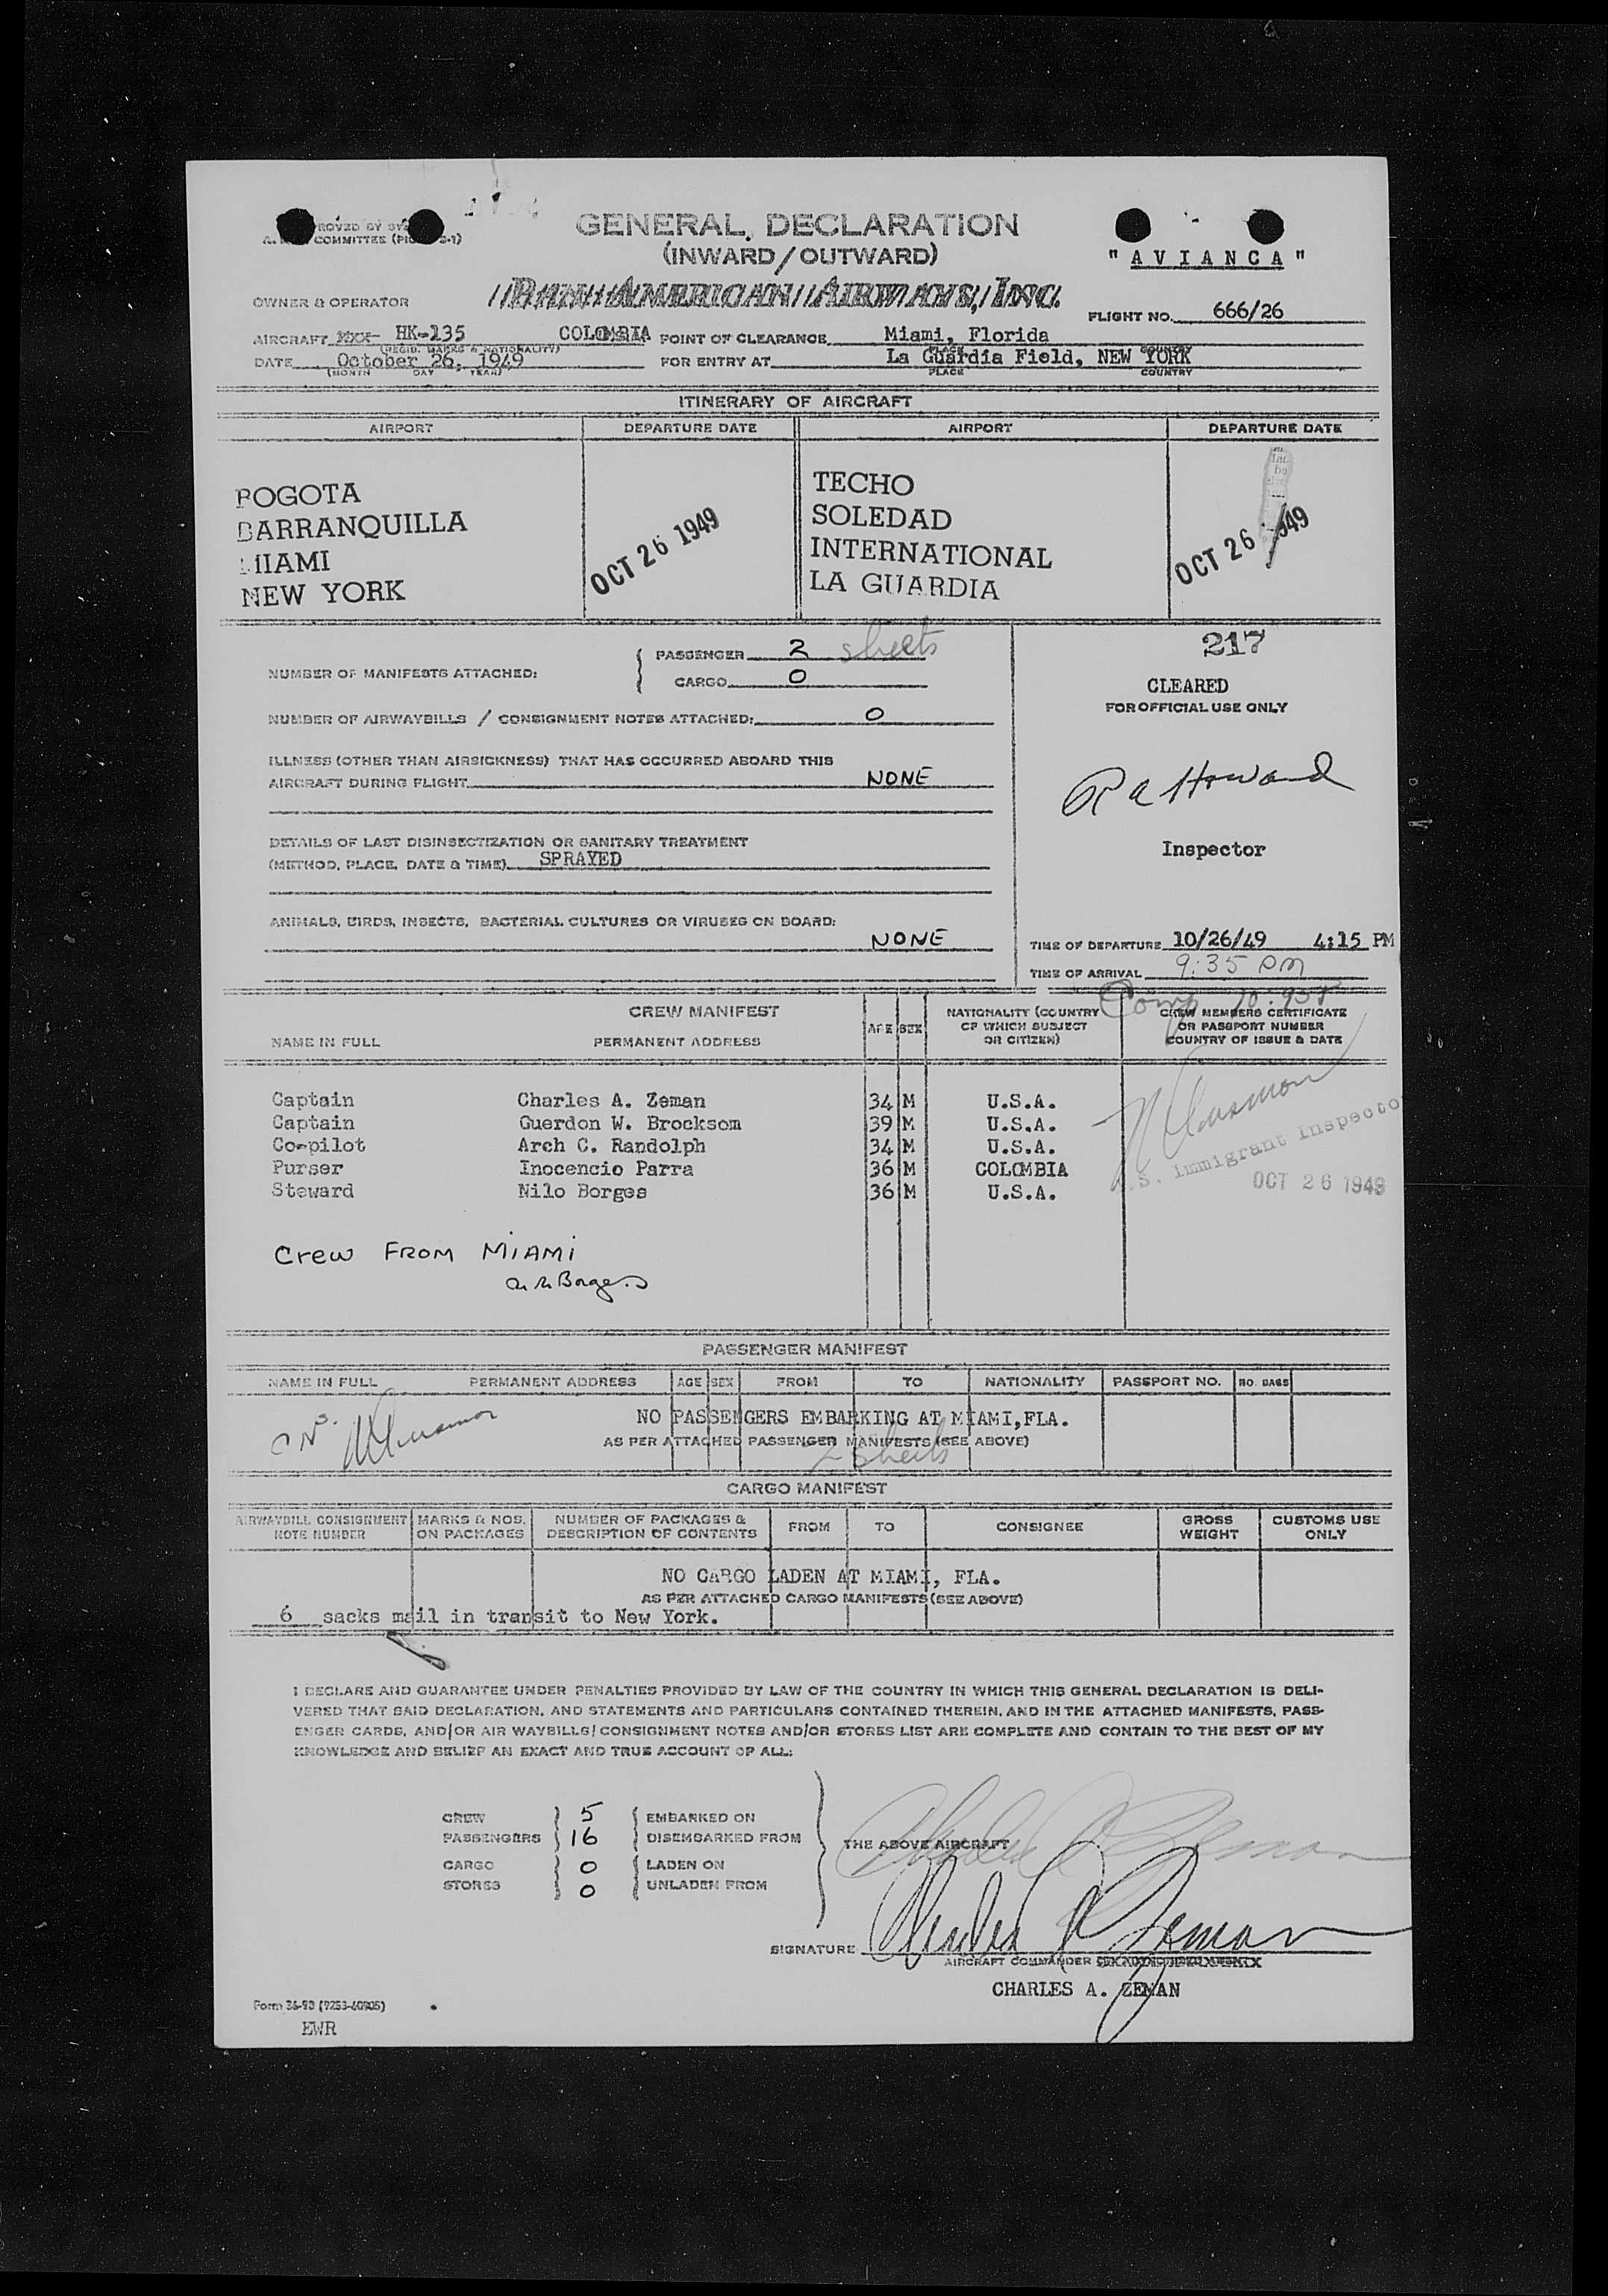 GENERAL DECLARATION
(INWARD/OUTWARD)
COMMITTEE
" A V I A N C A "
OWNER & OPERATOR PAN AMERICAN AIRWAYS, INC.
FLIGHT NO. 666/26
AIRCRAFT HK-135 COLOMBIA POINT OF CLEARANCE Miami, Florida
(REGIS. MARKS & NATIONALITY) PLACE COUNTRY
DATE October 26, 1949 FOR ENTRY AT La Guardia Field, NEW YORK
(MONTH DAY YEAR) PLACE COUNTRY
ITINERARY OF AIRCRAFT
AIRPORT DEPARTURE DATE AIRPORT DEPARTURE DATE
BOGOTA TECHO
BARRANQUILLA SOLEDAD
MIAMI OCT 26 1949 INTERNATIONAL OCT 26 1949
NEW YORK LA GUARDIA
NUMBER OF MANIFESTS ATTACHED: PASSENGER 2 sheets
CARGO 0
NUMBER OF AIRWAYBILLS / CONSIGNMENT NOTES ATTACHED: 0
ILLNESS (OTHER THAN AIRSICKNESS) THAT HAS OCCURRED ABOARD THIS
AIRCRAFT DURING FLIGHT NONE
DETAILS OF LAST DISINSECTIZATION OR SANITARY TREATMENT
(METHOD, PLACE, DATE & TIME) SPRAYED
ANIMALS, BIRDS, INSECTS, BACTERIAL CULTURES OR VIRUSES ON BOARD:
NONE
217
CLEARED
FOR OFFICIAL USE ONLY
R a Howard
Inspector
TIME OF DEPARTURE 10/26/49 4:15 PM
TIME OF ARRIVAL 9:35 PM
Comp
CREW MANIFEST
NAME IN FULL PERMANENT ADDRESS AGE SEX NATIONALITY (COUNTRY OF WHICH SUBJECT OR CITIZEN) CREW MEMBERS CERTIFICATE OR PASSPORT NUMBER COUNTRY OF ISSUE & DATE
Captain Charles A. Zeman 34 M U.S.A.
Captain Guerdon W. Brocksom 39 M U.S.A.
Co-pilot Arch C. Randolph 34 M U.S.A.
Purser Inocencio Parra 36 M COLOMBIA
Steward Nilo Borges 36 M U.S.A.
S. Immigrant Inspector
OCT 26 1949
Crew FROM MIAMI
Borges
PASSENGER MANIFEST
NAME IN FULL PERMANENT ADDRESS AGE SEX FROM TO NATIONALITY PASSPORT NO. NO. BAGS
NO PASSENGERS EMBARKING AT MIAMI,FLA.
AS PER ATTACHED PASSENGER MANIFESTS (SEE ABOVE)
2 sheets
CARGO MANIFEST
AIRWAYBILL CONSIGNMENT NOTE NUMBER MARKS & NOS. ON PACKAGES NUMBER OF PACKAGES & DESCRIPTION OF CONTENTS FROM TO CONSIGNEE GROSS WEIGHT CUSTOMS USE ONLY
NO CARGO LADEN AT MIAMI, FLA.
AS PER ATTACHED CARGO MANIFESTS (SEE ABOVE)
6 sacks mail in transit to New York.
I DECLARE AND GUARANTEE UNDER PENALTIES PROVIDED BY LAW OF THE COUNTRY IN WHICH THIS GENERAL DECLARATION IS DELI-
VERED THAT SAID DECLARATION, AND STATEMENTS AND PARTICULARS CONTAINED THEREIN, AND IN THE ATTACHED MANIFESTS, PASS-
ENGER CARDS, AND/OR AIR WAYBILLS/CONSIGNMENT NOTES AND/OR STORES LIST ARE COMPLETE AND CONTAIN TO THE BEST OF MY
KNOWLEDGE AND BELIEF AN EXACT AND TRUE ACCOUNT OF ALL:
CREW 5 EMBARKED ON
PASSENGERS 16 DISEMBARKED FROM
THE ABOVE AIRCRAFT
CARGO 0 LADEN ON
STORES 0 UNLADEN FROM
Charles A Zeman
SIGNATURE Charles A Zeman
AIRCRAFT COMMANDER
CHARLES A. ZEMAN
Form 36-93 (9253-60905)
EWR